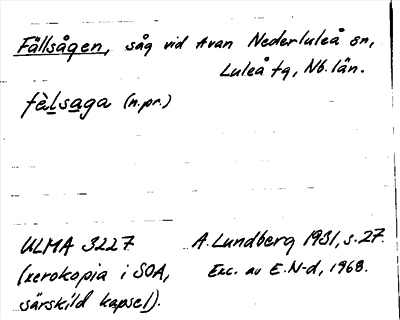 Fällsågen, såg vid tvan Nederluleå sn,
Luleå tg, Nb. län.
fèlsaga (n.pr.)
ULMA 3227
(xerokopia i SOA,
särskild kapsel).
A. Lundberg 1931, s. 27.
Exc. av E. N-d, 1968.